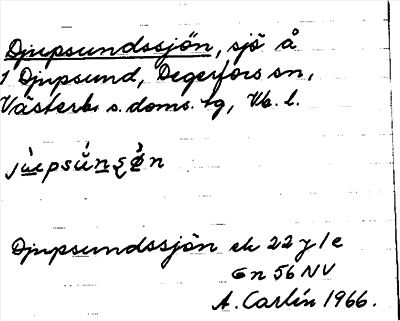 Djupsundssjön, sjö å
1 Djupsund, Degerfors sn,
Västerb. s. doms. tg, Vb. l.
Djupsundssjön ek 22 J 1 e
Gn 56 NV
A. Carlín 1966.